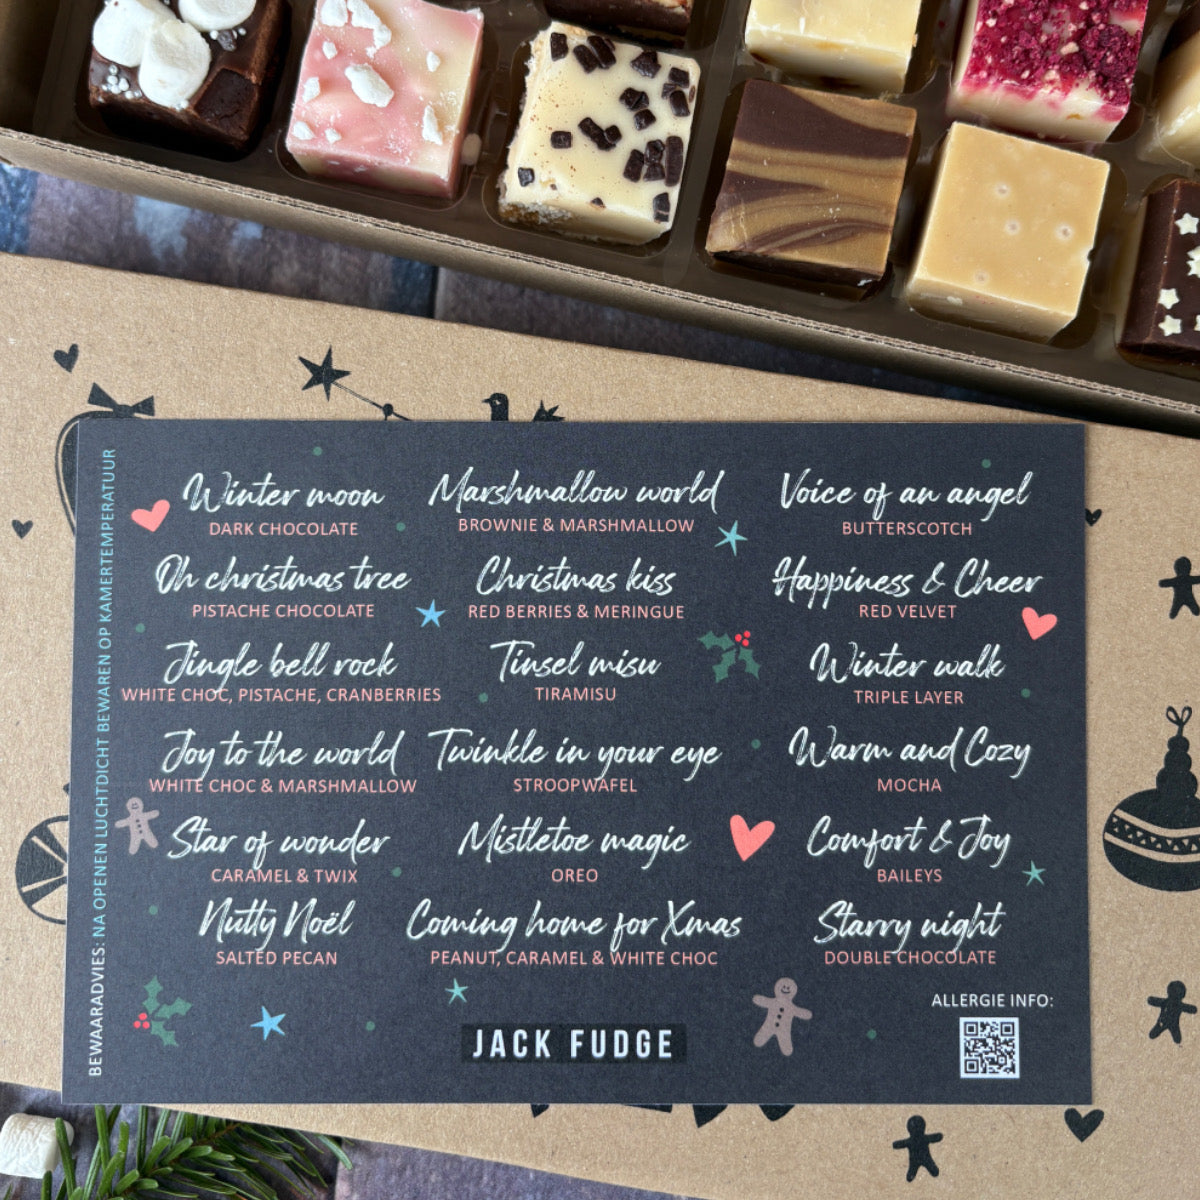 Winter moon
DARK CHOCOLATE
Marshmallow world
BROWNIE & MARSHMALLOW
Voice of an angel
BUTTERSCOTCH
Oh christmas tree
PISTACHE CHOCOLATE
Christmas kiss
RED BERRIES & MERINGUE
Happiness & Cheer
RED VELVET
Jingle bell rock
WHITE CHOC, PISTACHE, CRANBERRIES
Tinsel misu
TIRAMISU
Winter walk
TRIPLE LAYER
Joy to the world
WHITE CHOC & MARSHMALLOW
Twinkle in your eye
STROOPWAFEL
Warm and Cozy
MOCHA
Star of wonder
CARAMEL & TWIX
Mistletoe magic
OREO
Comfort & Joy
BAILEYS
Nutty Noël
SALTED PECAN
Coming home for Xmas
PEANUT, CARAMEL & WHITE CHOC
Starry night
DOUBLE CHOCOLATE
ALLERGIE INFO:
JACK FUDGE
BEWAARADVIES: NA OPENEN LUCHTDICHT BEWAREN OP KAMERTEMPERATUUR